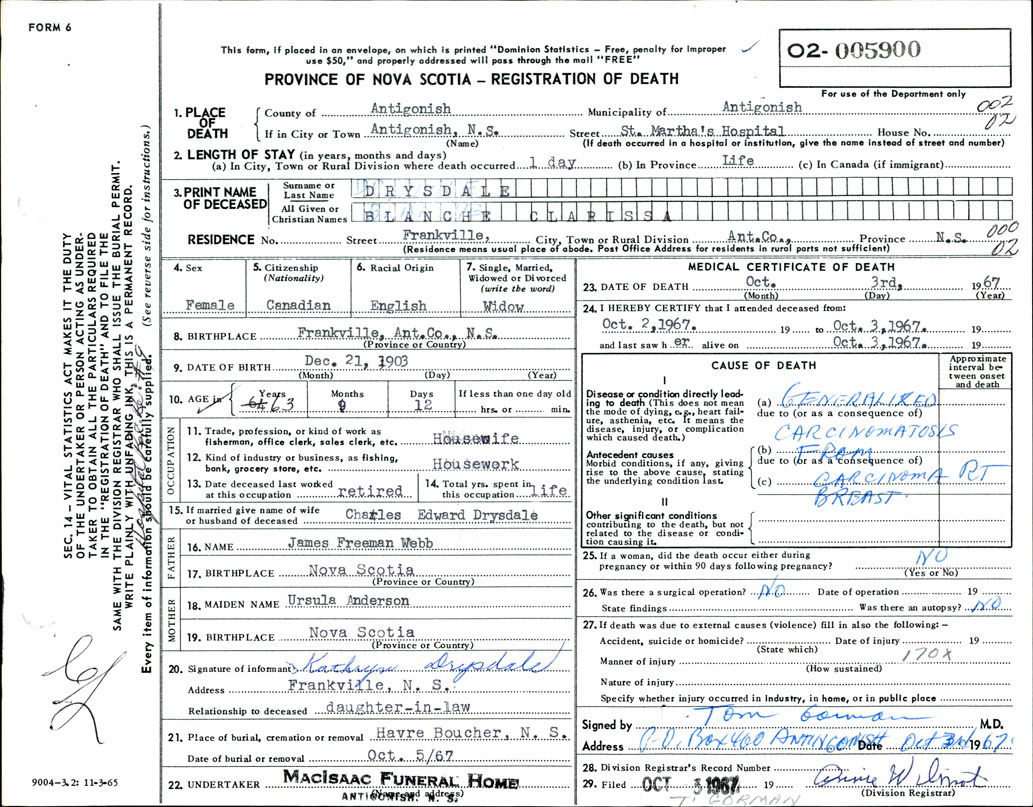 FORM 6
This form, if placed in an envelope, on which is printed "Dominion Statistics – Free, penalty for improper
use $50," and properly addressed will pass through the mail "FREE"
02- 005900
PROVINCE OF NOVA SCOTIA – REGISTRATION OF DEATH
For use of the Department only
1. PLACE OF DEATH
County of Antigonish Municipality of Antigonish 002
If in City or Town Antigonish, N.S. Street St. Martha's Hospital House No. 02
(Name) (If death occurred in a hospital or institution, give the name instead of street and number)
2. LENGTH OF STAY (in years, months and days)
(a) In City, Town or Rural Division where death occurred 1 day (b) In Province Life (c) In Canada (if immigrant)
3. PRINT NAME OF DECEASED
Surname or Last Name DRYSDALE
All Given or Christian Names BLANCHE CLARISSA
RESIDENCE No. Street Frankville, City, Town or Rural Division Ant.Co., Province N.S. 000
(Residence means usual place of abode. Post Office Address for residents in rural parts not sufficient) 02
4. Sex
Female
5. Citizenship
(Nationality)
Canadian
6. Racial Origin
English
7. Single, Married,
Widowed or Divorced
(write the word)
Widow
8. BIRTHPLACE Frankville, Ant.Co., N.S.
(Province or Country)
9. DATE OF BIRTH Dec. 21, 1903
(Month) (Day) (Year)
10. AGE in Years Months Days If less than one day old
64 63 9 12 hrs. or min.
OCCUPATION
11. Trade, profession, or kind of work as
fisherman, office clerk, sales clerk, etc. Housewife
12. Kind of industry or business, as fishing,
bank, grocery store, etc. Housework
13. Date deceased last worked
at this occupation retired
14. Total yrs. spent in
this occupation life
15. If married give name of wife
or husband of deceased Charles Edward Drysdale
FATHER
16. NAME James Freeman Webb
17. BIRTHPLACE Nova Scotia
(Province or Country)
MOTHER
18. MAIDEN NAME Ursula Anderson
19. BIRTHPLACE Nova Scotia
(Province or Country)
20. Signature of informant Kathryn Drysdale
Address Frankville, N. S.
Relationship to deceased daughter-in-law
21. Place of burial, cremation or removal Havre Boucher, N. S.
Date of burial or removal Oct. 5/67
22. UNDERTAKER MACISAAC FUNERAL HOME
(Name and address)
ANTIGONISH, N. S.
MEDICAL CERTIFICATE OF DEATH
23. DATE OF DEATH Oct. 3rd, 1967
(Month) (Day) (Year)
24. I HEREBY CERTIFY that I attended deceased from:
Oct. 2,1967. 19 to Oct. 3,1967. 19
and last saw h er alive on Oct. 3,1967. 19
CAUSE OF DEATH
Approximate
interval be-
tween onset
and death
I
Disease or condition directly lead-
ing to death (This does not mean
the mode of dying, e.g., heart fail-
ure, asthenia, etc. It means the
disease, injury, or complication
which caused death.)
(a) GENERALIZED
due to (or as a consequence of)
CARCINOMATOSIS
Antecedent causes
Morbid conditions, if any, giving
rise to the above cause, stating
the underlying condition last.
(b) FROM
due to (or as a consequence of)
(c) CARCINOMA RT
BREAST
II
Other significant conditions
contributing to the death, but not
related to the disease or condi-
tion causing it.
25. If a woman, did the death occur either during
pregnancy or within 90 days following pregnancy? NO
(Yes or No)
26. Was there a surgical operation? NO Date of operation 19
State findings Was there an autopsy? NO
27. If death was due to external causes (violence) fill in also the following: –
Accident, suicide or homicide? Date of injury 19
(State which)
170X
Manner of injury
(How sustained)
Nature of injury
Specify whether injury occurred in industry, in home, or in public place
Signed by Tom Gorman M.D.
Address P.O. Box 460 ANTIGONISH Date Oct 3rd 1967
28. Division Registrar's Record Number
29. Filed OCT 5 1967 19
(Division Registrar)
T. GORMAN
SEC. 14 – VITAL STATISTICS ACT MAKES IT THE DUTY
OF THE UNDERTAKER OR PERSON ACTING AS UNDER-
TAKER TO OBTAIN ALL THE PARTICULARS REQUIRED
IN THE "REGISTRATION OF DEATH" AND TO FILE THE
SAME WITH THE DIVISION REGISTRAR WHO SHALL ISSUE THE BURIAL PERMIT.
WRITE PLAINLY WITH UNFADING INK, THIS IS A PERMANENT RECORD.
Every item of information should be carefully supplied. (See reverse side for instructions.)
9004-3.2: 11-3-65